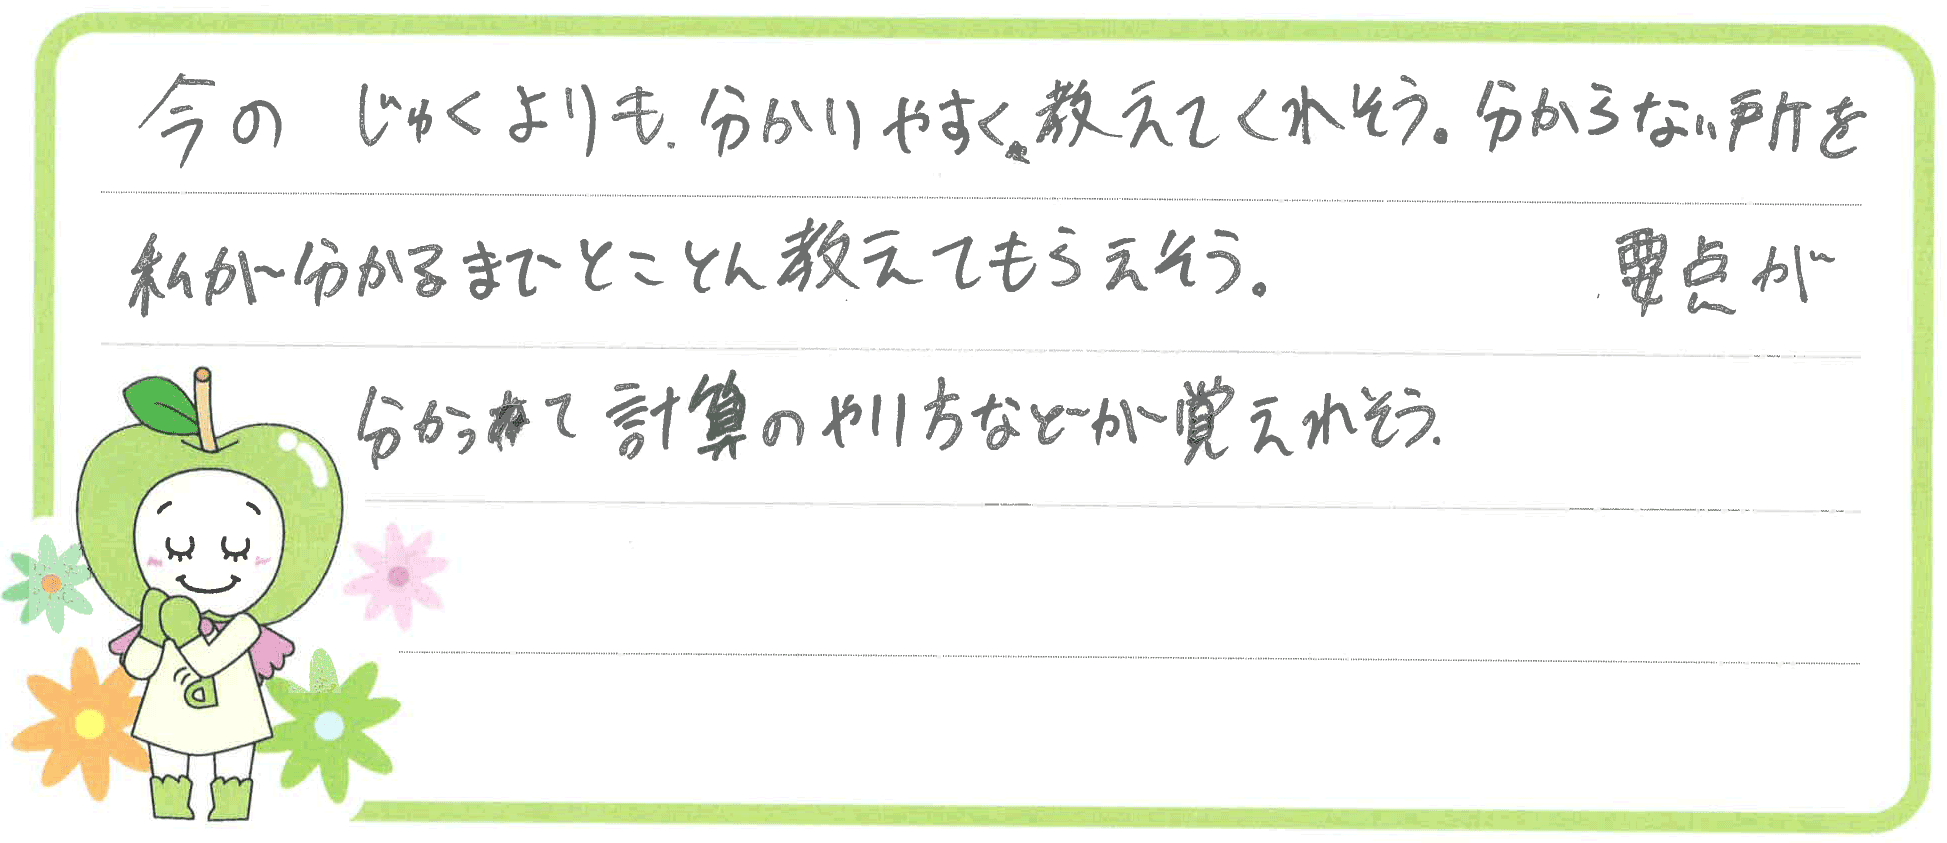 今の じゅくよりも、分かりやすく教えてくれそう。分からない所を
私が分かるまでとことん教えてもらえそう。 要点が
分かって計算のやり方などが覚えれそう.